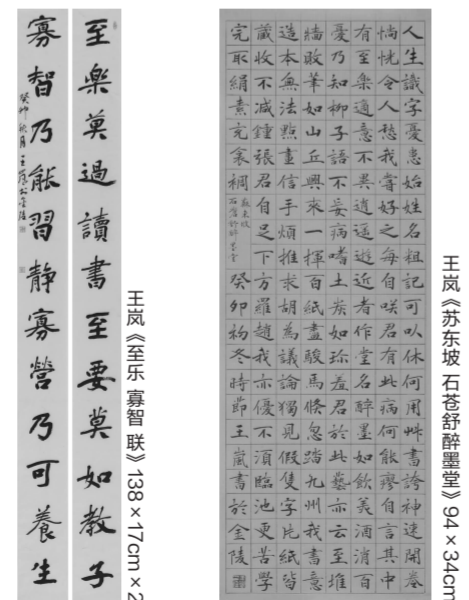 至樂莫過讀書至要莫如教子
寡智乃能習靜寡營乃可養生
癸卯秋月王嵐於金陵
王岚《至乐 寡智 联》138×17cm×2
人生識字憂患始姓名粗記可以休何用艸書誇神速開卷
惝恍令人愁我嘗好之每自咲君有此病何能瘳自言其中
有至樂適意不異逍遙遊近者作堂名醉墨如飲美酒消百
憂乃知柳子語不妄病嗜土炭如珍羞君於此藝亦云至堆
牆敗筆如山丘興來一揮百紙盡駿馬倏忽踏九州我書意
造本無法點畫信手煩推求胡為議論獨見假隻字片紙皆
藏收不減鍾張君自足下方羅趙我亦優不須臨池更苦學
完取絹素充衾裯
蘇東坡
石蒼舒醉墨堂
癸卯初冬時節王嵐書於金陵
王岚《苏东坡 石苍舒醉墨堂》94×34cm